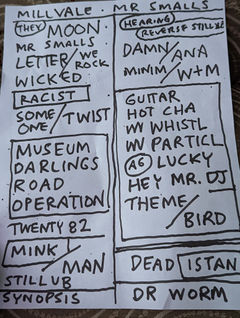 MILLVALE MR SMALLS
THEY/MOON
MR SMALLS
LETTER/WE ROCK
WICKED
RACIST
SOME ONE/TWIST
MUSEUM
DARLINGS
ROAD
OPERATION
TWENTY 82
MINK/MAN
STILLUB
SYNOPSIS
HEARING
(REVERSE STILLX2
DAMN/ANA
MINIM/W+M
GUITAR
HOT CHA
W WHISTL
W PARTICL
A6 LUCKY
HEY MR. DJ
THEME/BIRD
DEAD ISTAN
DR WORM